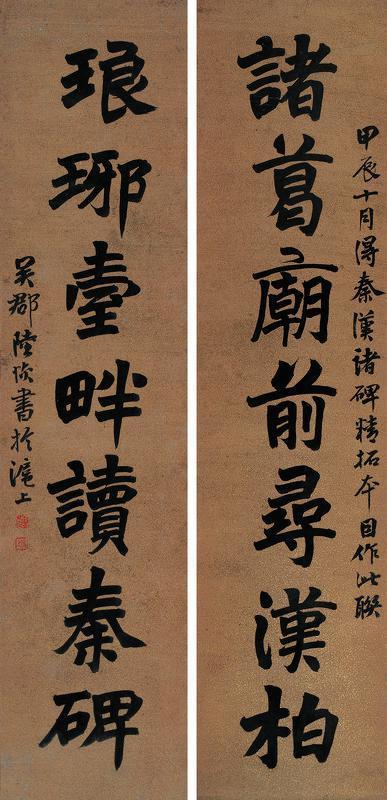 甲辰十月得秦漢諸碑精拓本因作此聯
諸葛廟前尋漢柏
琅琊臺畔讀秦碑
吳郡陸恢書於滬上